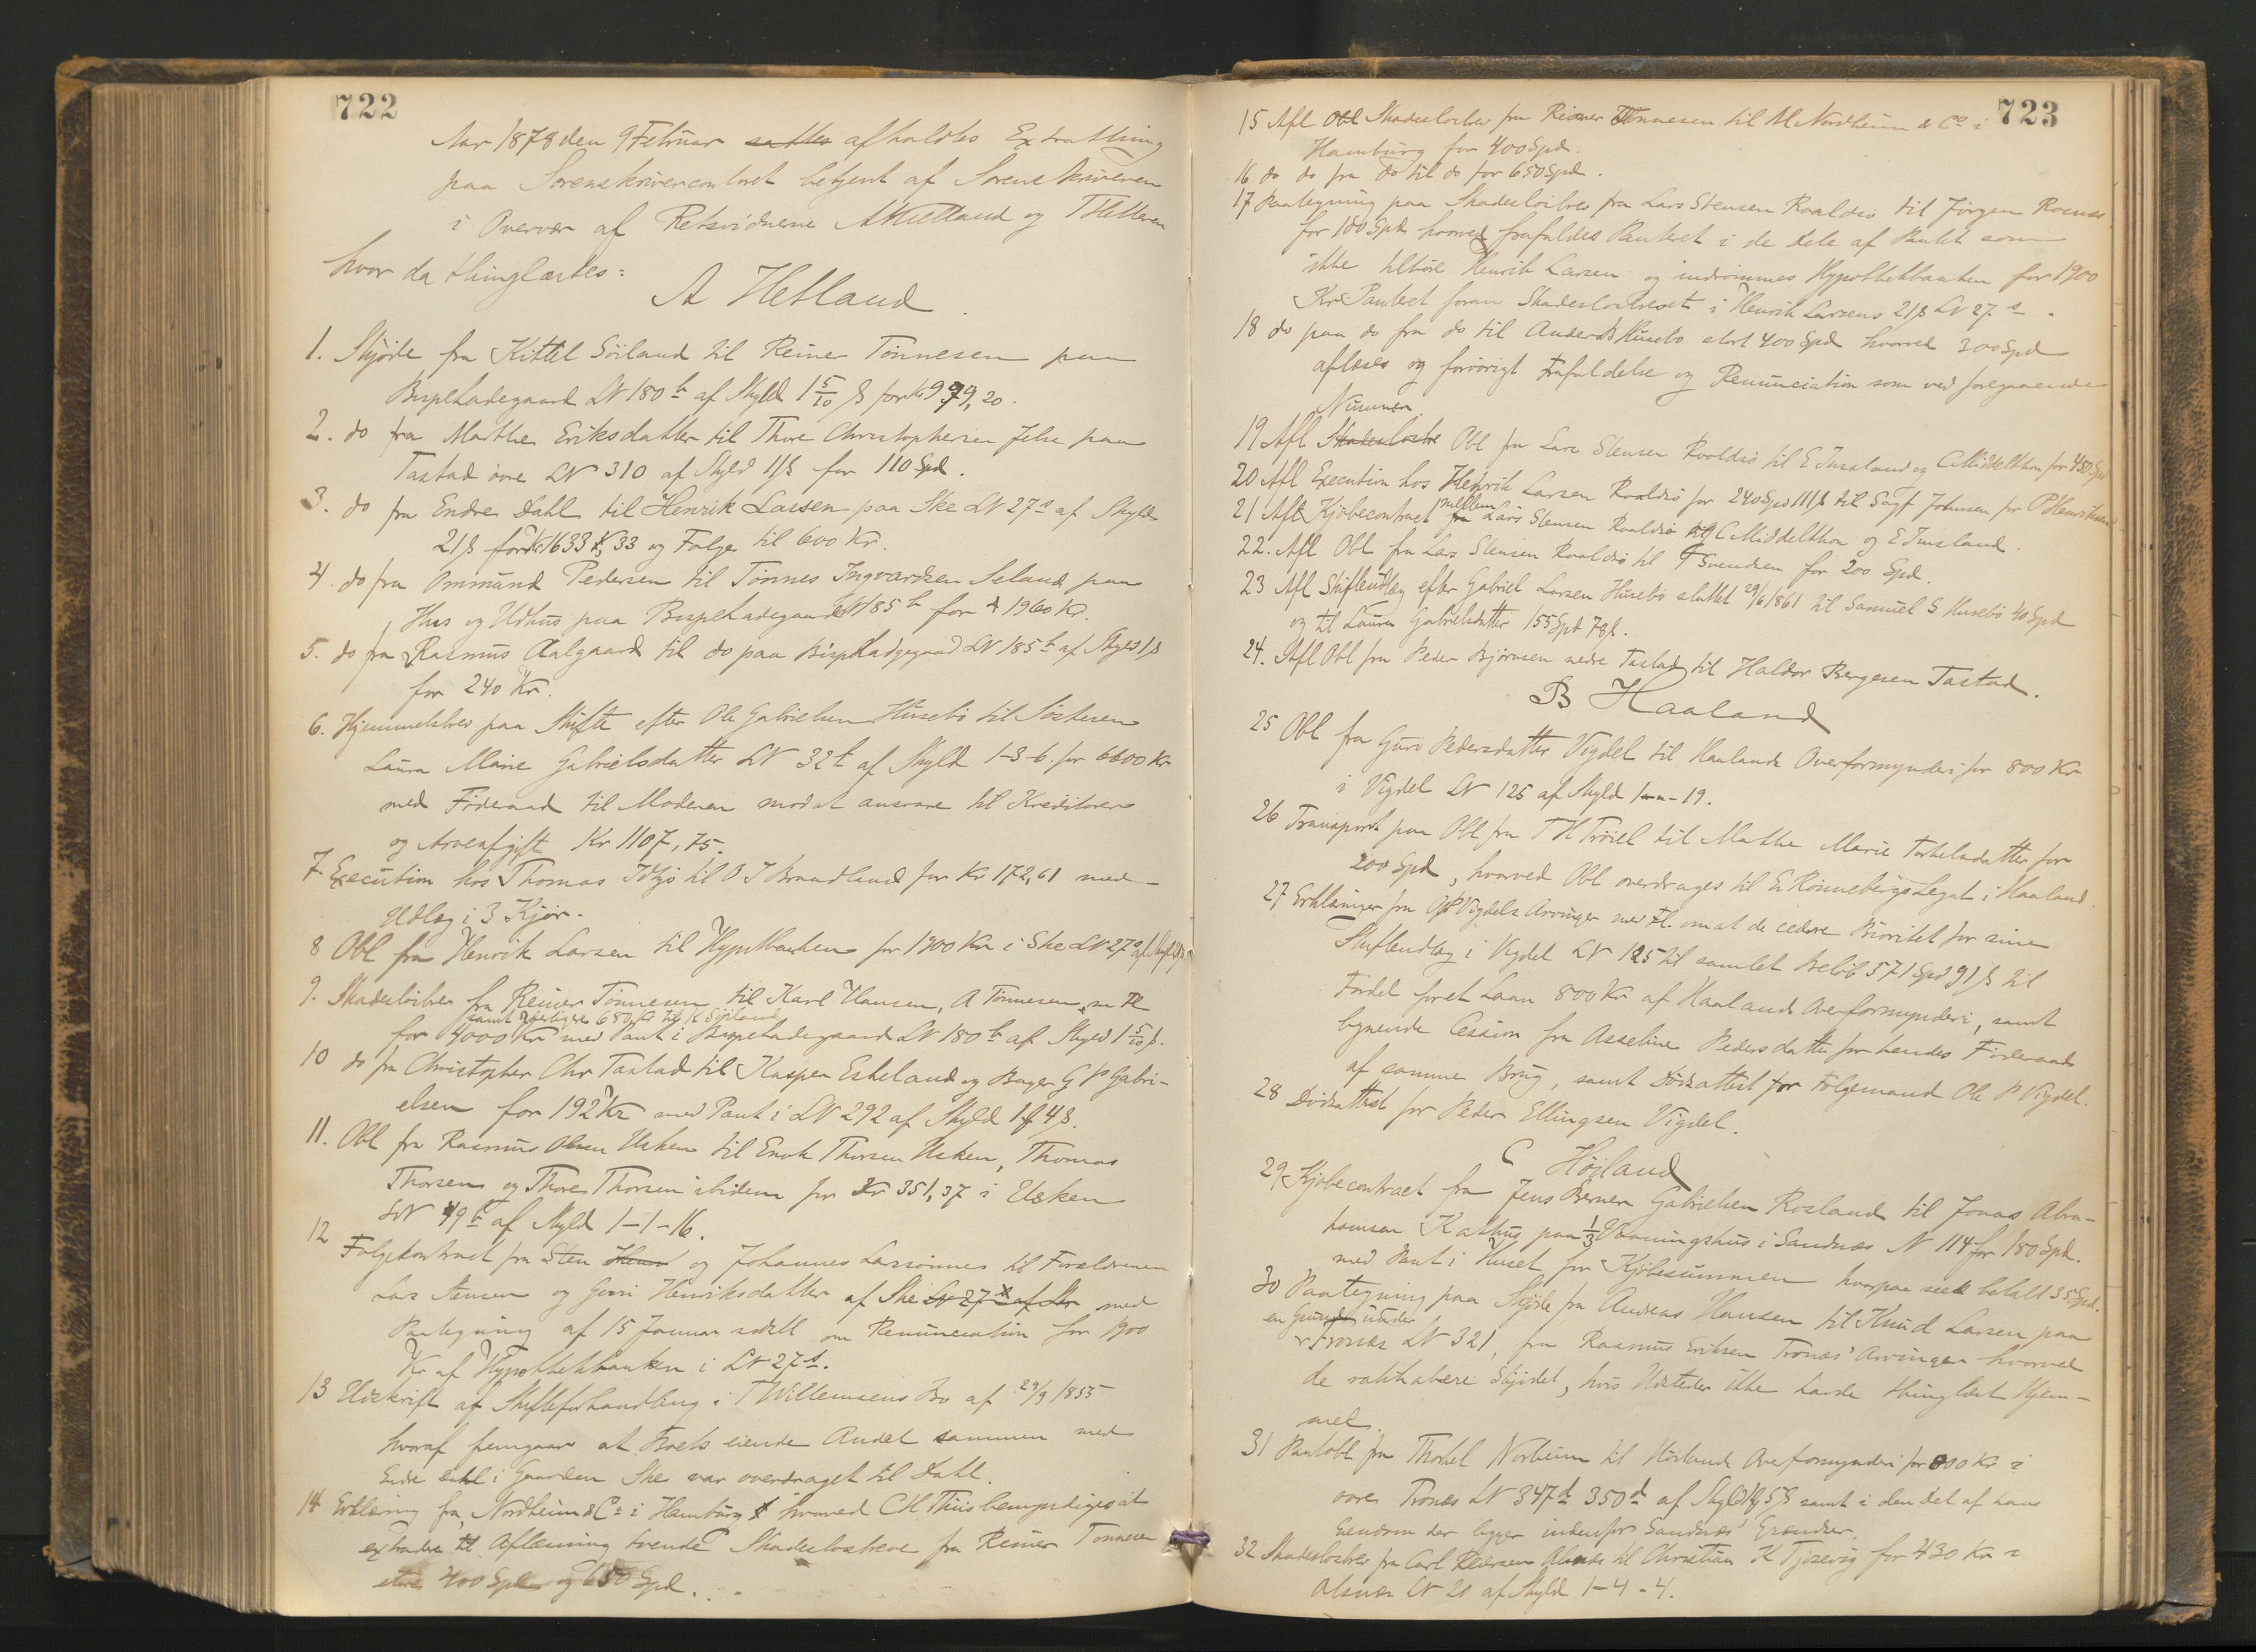 722
Aar 1878 den 9 Februar sattes afholdtes Extrathing
paa Sorenskrivercontoret betjent af Sorenskriveren
i Overvær af Retsvidnerne A Hetland og T Hetteren
hvor da thinglæstes:
A Hetland
1. Skjöde fra Kittel Söiland til Reiner Tönnesen paa
Bispeladegaard LN 180 b af Skyld 1 5/10 ß for Kr 979,20.
2. do fra Marthe Eriksdatter til Thore Christophersen Jelse paa
Tastad övre LN 310 af Skyld 11ß for 110 Spd.
3. do fra Endre Dahl til Henrik Larsen paa Ske LN 27 a af Skyld
21ß for Kr 1633,33 og Folge til 600 Kr.
4. do fra Ommund Pedersen til Tönnes Ingvardsen Seland paa
Hus og Udhus paa Bispeladegaard LN 185 b for 1960 Kr.
5. do fra Rasmus Aalgaard til do paa Bispeladegaard LN 185 b af Skyld 1ß
for 240 Kr.
6. Hjemmelsbrev paa Skifte efter Ole Gabrielsen Husebö til Söstern
Laura Marie Gabrielsdatter LN 32 b af Skyld 1-3-6 for 6600 Kr
med Föderaad til Moderen mod at ansvare til Kreditorer
og Arveafgift Kr 1107,75.
7 Execution hos Thomas Idsö til O J Braadland for Kr 172,61 med
Udlæg i 3 Kjör.
8 Obl fra Henrik Larsen til Hypothbanken for 1900 Kr i Ske LN 27 a af Skyld 21ß
9. Skadeslösbrev fra Reiner Tönnesen til Karl Hansen, A Tönnesen m Fl
samt yderligere 680 Kr til K Söiland
for 4000 Kr med Pant i Bispeladegaard LN 180 b af Skyld 1 5/10 ß.
10 do fra Christopher Chr Tastad til Kasper Eskeland og Bager G P Gabri-
elsen for 192 Kr med Pant i LN 292 af Skyld 1 ß 4 ß.
11. Obl fra Rasmus Olsen Usken til Enok Thorsen Usken, Thomas
Thorsen og Thore Thorsen ibidem for Kr 351,37 i Usken
LN 49 b af Skyld 1-1-16.
12 Folgekontract fra Sten og Johannes Larssönner til Forældrene
Lars Stensen og Guri Henriksdatter af Ske LN 27 a af Ske med
Paategning af 15 Januar sidstl om Renunciation for 1900
Kr af Hypothekbanken i LN 27 a.
13 Udskrift af Skifteforhandling i T Willemsens Bo af 29/9 1855
hvoraf fremgaar at Boets eiende Andel sammen med
Endre Dahl i Gaarden Ske var overdraget til Dahl.
14 Erklæring fra Nordheim & Co i Hamburg hvorved C M Thiis bemyndiges at
extradere til Aflæsning tvende Skadeslosbreve fra Reiner Tönnesen
store 400 Spd og 650 Spd.
723
15 Afl Obl Skadeslosbrev fra Reiner Tönnesen til M Nordheim & Co i
Hamburg for 400 Spd.
16 do do fra do til do for 650 Spd.
17 Paategning paa Skadeslösbrev fra Lars Stensen Roaldsö til Jörgen Rosnes
for 100 Spd hvorved frafaldes Panteret i de Dele af Pantet som
ikke tilhöre Henrik Larsen og indrömmes Hypothekbanken for 1900
Kr Panteret foran Skadeslosbrevet i Henrik Larsens 21ß LN 27 a.
18 do paa do fra do til Anders B Husebö stort 400 Spd hvorved 300 Spd
aflæses og forövrigt Frafaldelse og Renunciation som ved foregaaende
Nummer.
19 Afl Skadeslosbr Obl fra Lars Stensen Roaldsö til E Tuesland og C Middelthon for 450 Spd
20 Afl Execution hos Henrik Larsen Roaldsö for 240 Spd 11ß til Sagf Johnsen for P Henriksen
21 Afl Kjöbecontract fra mellem Lars Stensen Roaldsö og C Middelthon og E Tuesland.
22. Afl Obl fra Lars Stensen Roaldsö til Svendsen for 200 Spd.
23 Afl Skifteudlæg efter Gabriel Larsen Husebö sluttet 29/6 1861 til Samuel S Husebö 40 Spd
og til Laura Gabrielsdatter 155 Spd 78ß.
24. Afl Obl fra Peder Björnsen nedre Tastad til Haldor Bergesen Tastad.
B Haaland
25 Obl fra Guri Pedersdatter Vigdel til Haalands Overformynderi for 800 Kr
i Vigdel LN 125 af Skyld 1-"-19.
26 Transport paa Obl fra T H Tröiel til Marthe Marie Torkelsdatter for
200 Spd, hvorved Obl overdrages til E Rönnebergs Legat i Haaland.
27 Erklæringer fra O P Vigdels Arvinger med Fl. om at de cedere Prioritet for sine
Skifteudlæg i Vigdel LN 125 til samlet Belöb 571 Spd 91ß til
Fordel for et Laan 800 Kr af Haalands Overformynderi, samt
lignende Cession fra Asseline Pedersdatter for hendes Föderaad
af samme Brug, samt Dödsattest for Folgemand Ole P Vigdel.
28 Dödsattest for Peder Ellingsen Vigdel.
C Höiland
29 Kjöbecontract fra Jens Berner Gabrielsen Rosland til Jonas Abra-
hamsen Kalhus paa 1/3 Vaaningshus i Sandnæs N 114 for 180 Spd.
med Pant i Huset for Kjöbesummen hvorpaa betalt 35 Spd.
30 Paategning paa Skjöde fra Andreas Hansen til Knud Larsen paa
en Grund under
Tronæs LN 321, fra Rasmus Eriksen Tronæs' Arvinger hvorved
de ratihabere Skjödet, hvis Udsteder ikke havde thinglæst Hjem-
mel
31 Pantobl fra Thorkel Norheim til Höilands Overformynderi for 800 Kr i
övre Tronæs LN 347 d 350 d af Skyld 5ß samt i den Del af hans
Eiendom der ligger indenfor Sandnæs' Grændser.
32 Skadeslosbrev fra Carl Pedersen Alsnæs til Christian K Tjosevig for 430 Kr i
Alsnæs LN 20 af Skyld 1-4-4.